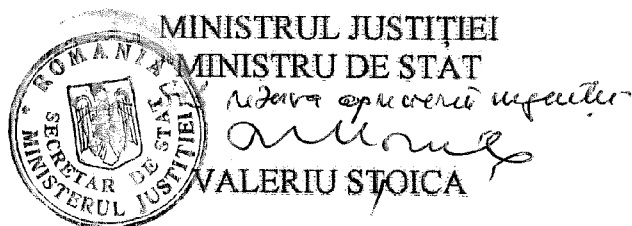 MINISTRUL JUSTIȚIEI
MINISTRU DE STAT
VALERIU STOICA
ROMANIA
SECRETAR DE STAT
MINISTERUL JUSTIȚIEI